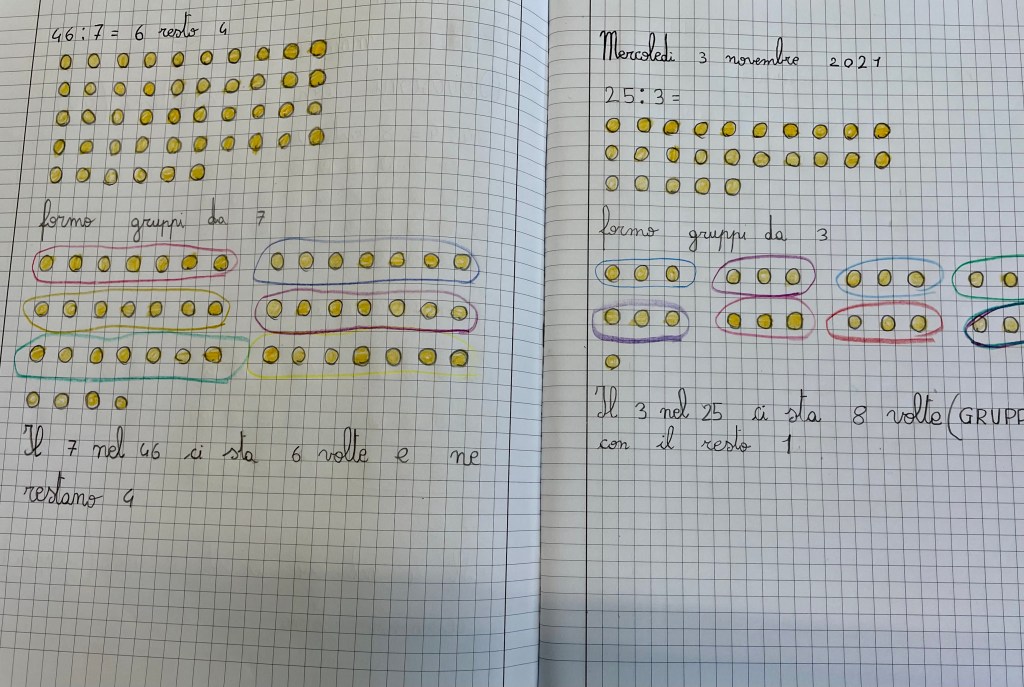 46:7= 6 resto 4
formo gruppi da 7
Il 7 nel 46 ci sta 6 volte e ne
restano 4
Mercoledì 3 novembre 2021
25:3=
formo gruppi da 3
Il 3 nel 25 ci sta 8 volte (GRUPP
con il resto 1